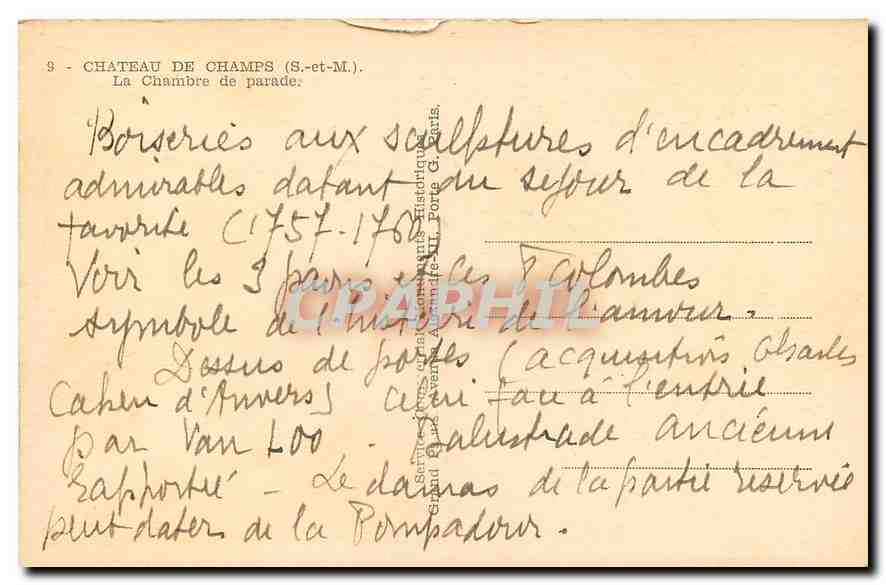 9 - CHATEAU DE CHAMPS (S.-et-M.).
La Chambre de parade.
Boiseries aux sculptures d'encadrement
admirables datant du sejour de la
favorite (1757-1760)
Voir les 3 paons et les 8 colombes
symbole de l'histoire de l'amour.
Dessus de portes (acquisitions Charles
Cahen d'Anvers) celui à l'entrée
par Van Loo. Balustrade ancienne
rapportée - Le damas de la partie reservée
peut dater de la Pompadour.
Service Monuments Historiques
Grand Palais, Avenue Alexandre-III, Porte G, Paris.
CPAPHIL